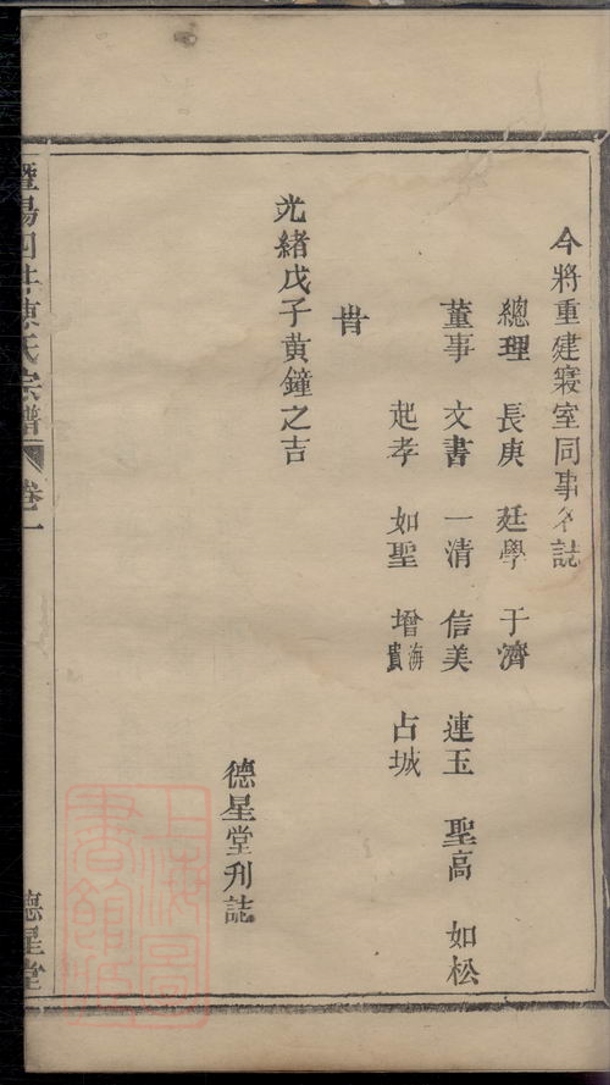 今將重建寢室同事名誌
總理 長庚 廷學 于濟
董事 文書 一清 信美 連玉 聖高 如松
起孝 如聖 增海貴 占城
旹
光緒戊子黃鐘之吉
德星堂刋誌
暨陽四井陳氏宗譜 卷一 德星堂
上海圖書館藏